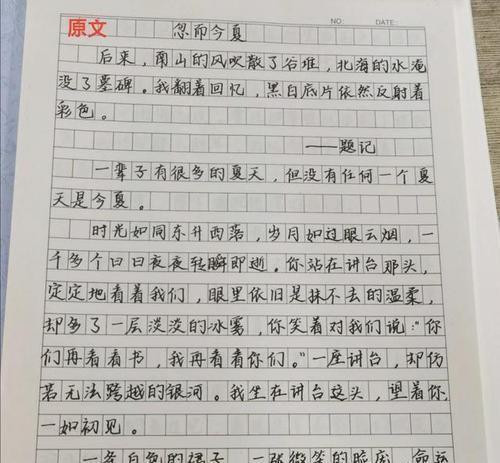 原文
NO: DATE:
忽而今夏
后来，南山的风吹散了谷堆，北海的水淹
没了墓碑。我翻着回忆，黑白底片依然反射着
彩色。
——题记
一辈子有很多的夏天，但没有任何一个夏
天是今夏。
时光如同东升西落，岁月如过眼云烟，一
千多个日日夜夜转瞬即逝。你站在讲台那头，
定定地看着我们，眼里依旧是抹不去的温柔，
却多了一层淡淡的冰雾，你笑着对我们说："你
们再看看书，我再看看你们。"一座讲台，却仿
若无法跨越的银河。我坐在讲台这头，望着你，
一如初见。
一条白色的裙子，一张微笑的脸庞，命运